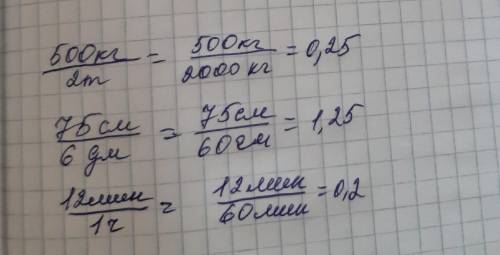 500кг/2т = 500кг/2000кг = 0,25
75см/6дм = 75см/60см = 1,25
12мин/1ч = 12мин/60мин = 0,2